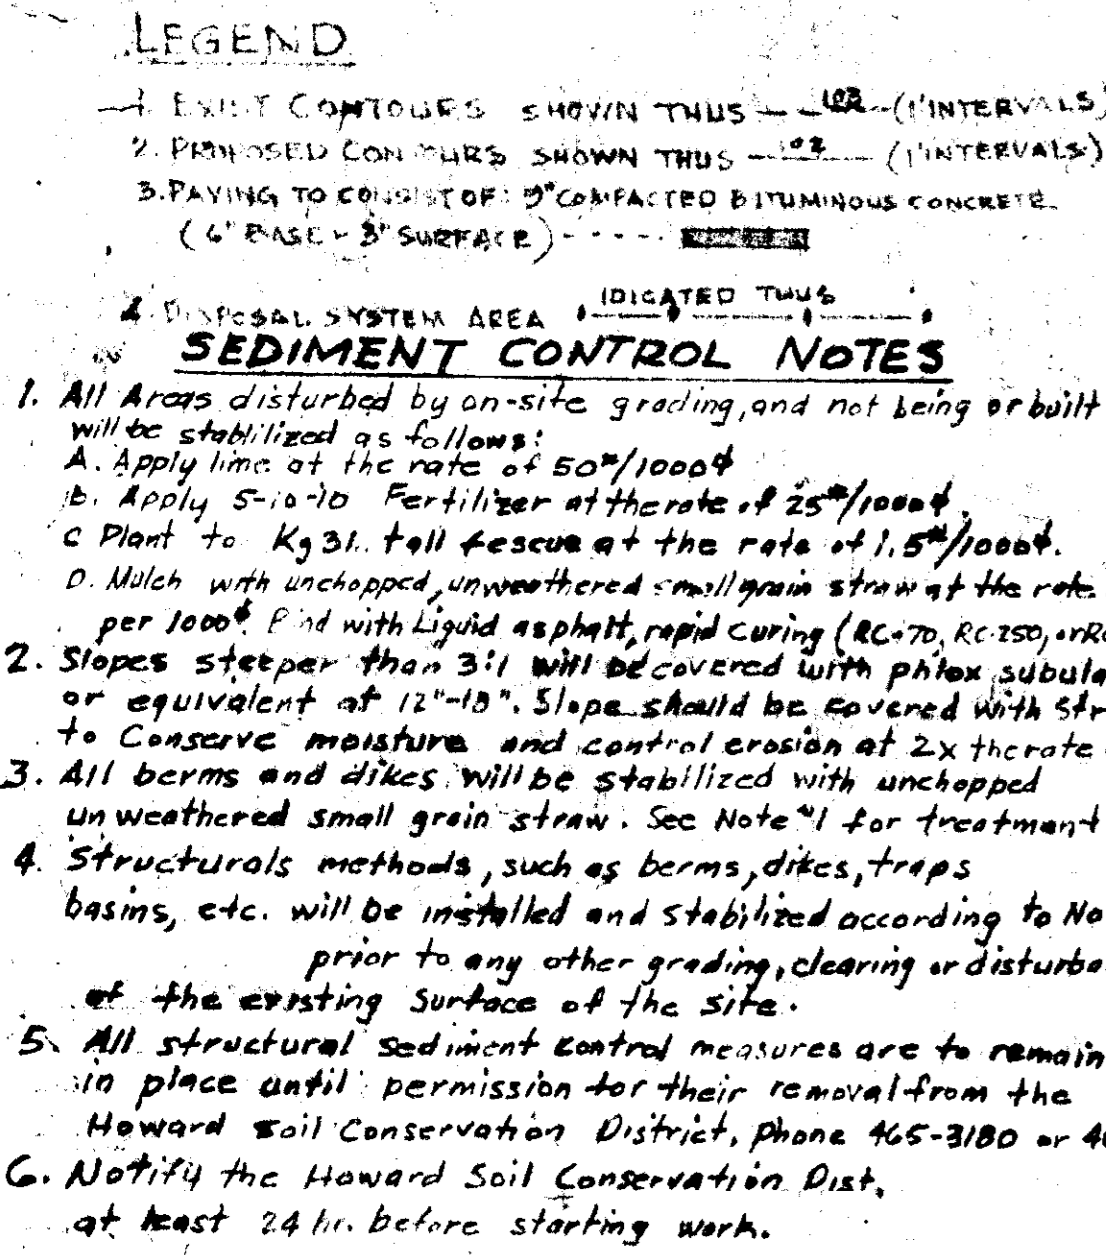 LEGEND
1. EXIST CONTOURS SHOWN THUS — 102 — (1' INTERVALS)
2. PROPOSED CONTOURS SHOWN THUS — 102 — (1' INTERVALS)
3. PAVING TO CONSIST OF: 9" COMPACTED BITUMINOUS CONCRETE
(6" BASE - 3" SURFACE) - - - - -
4. DISPOSAL SYSTEM AREA IDICATED THUS
SEDIMENT CONTROL NOTES
1. All Areas disturbed by on-site grading, and not being or built
will be stablilized as follows:
A. Apply lime at the rate of 50#/1000⌀
b. Apply 5-10-10 Fertilizer at the rate of 25#/1000⌀.
C Plant to Kg 31. tall fescue at the rate of 1.5#/1000⌀.
D. Mulch with unchopped, unweathered small grain straw at the rate
per 1000⌀. Bind with Liquid asphalt, rapid curing (RC-70, RC-250, or RC
2. Slopes steeper than 3:1 will be covered with phlox subula
or equivalent at 12"-18". Slope should be covered with Str
to Conserve moisture and control erosion at 2x the rate
3. All berms and dikes will be stabilized with unchopped
unweathered small grain straw. See Note #1 for treatment
4. Structurals methods, such as berms, dikes, traps
basins, etc. will be installed and stabilized according to No
prior to any other grading, clearing or disturba
of the existing Surface of the site.
5. All structural sediment control measures are to remain
in place until permission for their removal from the
Howard soil Conservation District, phone 465-3180 or 4
6. Notify the Howard Soil Conservation Dist,
at least 24 hr. before starting work.